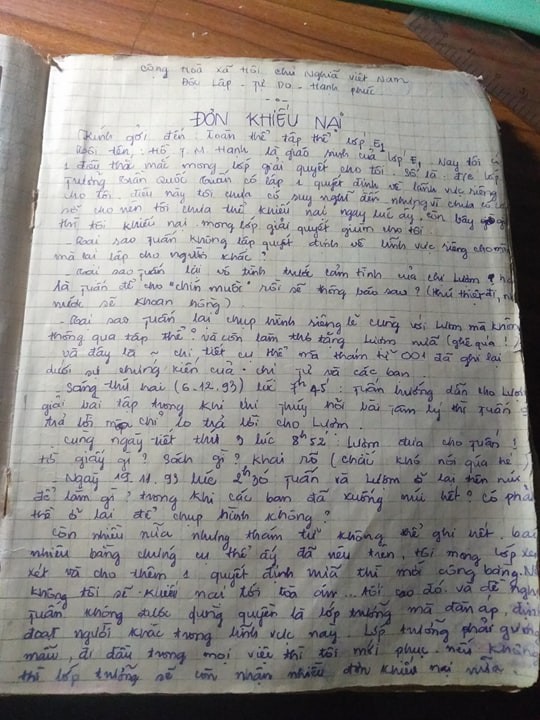 Cộng hoà xã hội chủ nghĩa Việt Nam
Độc Lập - Tự Do - Hạnh phúc
ĐƠN KHIẾU NẠI
Kính gởi đến toàn thể tập thể lớp E1
Tôi tên: Hồ T. M. Hạnh là giáo sinh của lớp E1 Nay tôi có
1 điều thắc mắc mong lớp giải quyết cho tôi. Số là được lớp
Trưởng Trần Quốc Tuấn có lập 1 quyết định về lãnh vực riêng
cho tôi. điều này tôi chưa có suy nghĩ đến nhưng vì chưa có cơ
nên tôi chưa thể khiếu nại ngay lúc ấy. Còn bây giờ
thì tôi khiếu nại mong lớp giải quyết giùm cho tôi
- Tại sao Tuấn không lập quyết định về lĩnh vực riêng cho mình
mà lại lập cho người khác?
- Tại sao Tuấn lại vô tình trước cảm tình của chị Lượm? hay
là Tuấn để cho "chín muồi" rồi sẽ thông báo sau? (
nước sẽ khoan hồng)
- Tại sao Tuấn lại chụp hình riêng lẻ cùng với Lượm mà không
thông qua tập thể? và còn làm thơ tặng Lượm nữa (ghê quá!)
Và đây là ~ chi tiết cụ thể mà thám tử 001 đã ghi lại
dưới sự chứng kiến của chị Tư và các bạn
- Sáng thứ hai (6.12.93) lúc 7h45': Tuấn hướng dẫn cho Lượm
giải bài tập trong khi chị Thúy hỏi bài tâm lý thì Tuấn
trả lời mà chỉ lo trả lời cho Lượm.
Cũng ngày tiết thứ 3 lúc 8h52': Lượm đưa cho Tuấn 1
tờ giấy gì? Sách gì? khai rõ (chắc khó nói quá hé)
- Ngày 19.11.93 lúc 2h30 Tuấn và Lượm ở lại trên núi
để làm gì? trong khi các bạn đã xuống núi hết? có phải
thế ở lại để chụp hình không?
Còn nhiều nữa nhưng thám tử không thể ghi hết.
nhiêu bằng chứng cụ thể đã nêu trên, tôi mong lớp xem
xét và cho thêm 1 quyết định nữa thì mới công bằng. Nếu
không tôi sẽ khiếu nại tới toà án... tối cao đó. và đề nghị
Tuấn không được dụng quyền là lớp trưởng mà đàn áp,
đoạt người khác trong lĩnh vực này. Lớp trưởng phải gương
mẫu, đi đầu trong mọi việc thì tôi mới phục. nếu không
thì lớp trưởng sẽ còn nhận nhiều đơn khiếu nại nữa.